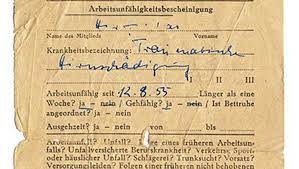 Arbeitsunfähigkeitsbescheinigung
Name des Mitglieds Vorname
Krankheitsbezeichnung: Traumatische
Hirnschädigung
I II III
Arbeitsunfähig seit 12.8.55 Länger als eine
Woche? ja – nein / Gehfähig? ja – nein / Ist Bettruhe
angeordnet? ja – nein
Ausgehzeit? ja – nein von bis
Arbeitsunfall? Unfall? Liegen Folgen eines früheren Arbeitsunfalls
oder häuslicher Unfall? Schlägerei? Trunksucht? Vorsatz?
Versorgungsleiden? Folgen einer früheren nicht behobenen